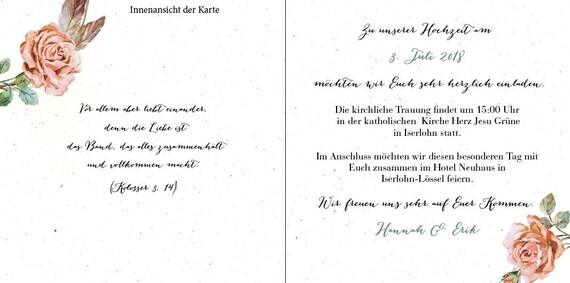 Innenansicht der Karte
Vor allem aber liebt einander,
denn die Liebe ist
das Band, das alles zusammenhält
und vollkommen macht.
(Kolosser 3, 14)
Zu unserer Hochzeit am
3. Juli 2018
möchten wir Euch sehr herzlich einladen.
Die kirchliche Trauung findet um 15:00 Uhr
in der katholischen Kirche Herz Jesu Grüne
in Iserlohn statt.
Im Anschluss möchten wir diesen besonderen Tag mit
Euch zusammen im Hotel Neuhaus in
Iserlohn-Lössel feiern.
Wir freuen uns sehr auf Euer Kommen.
Hannah & Erik